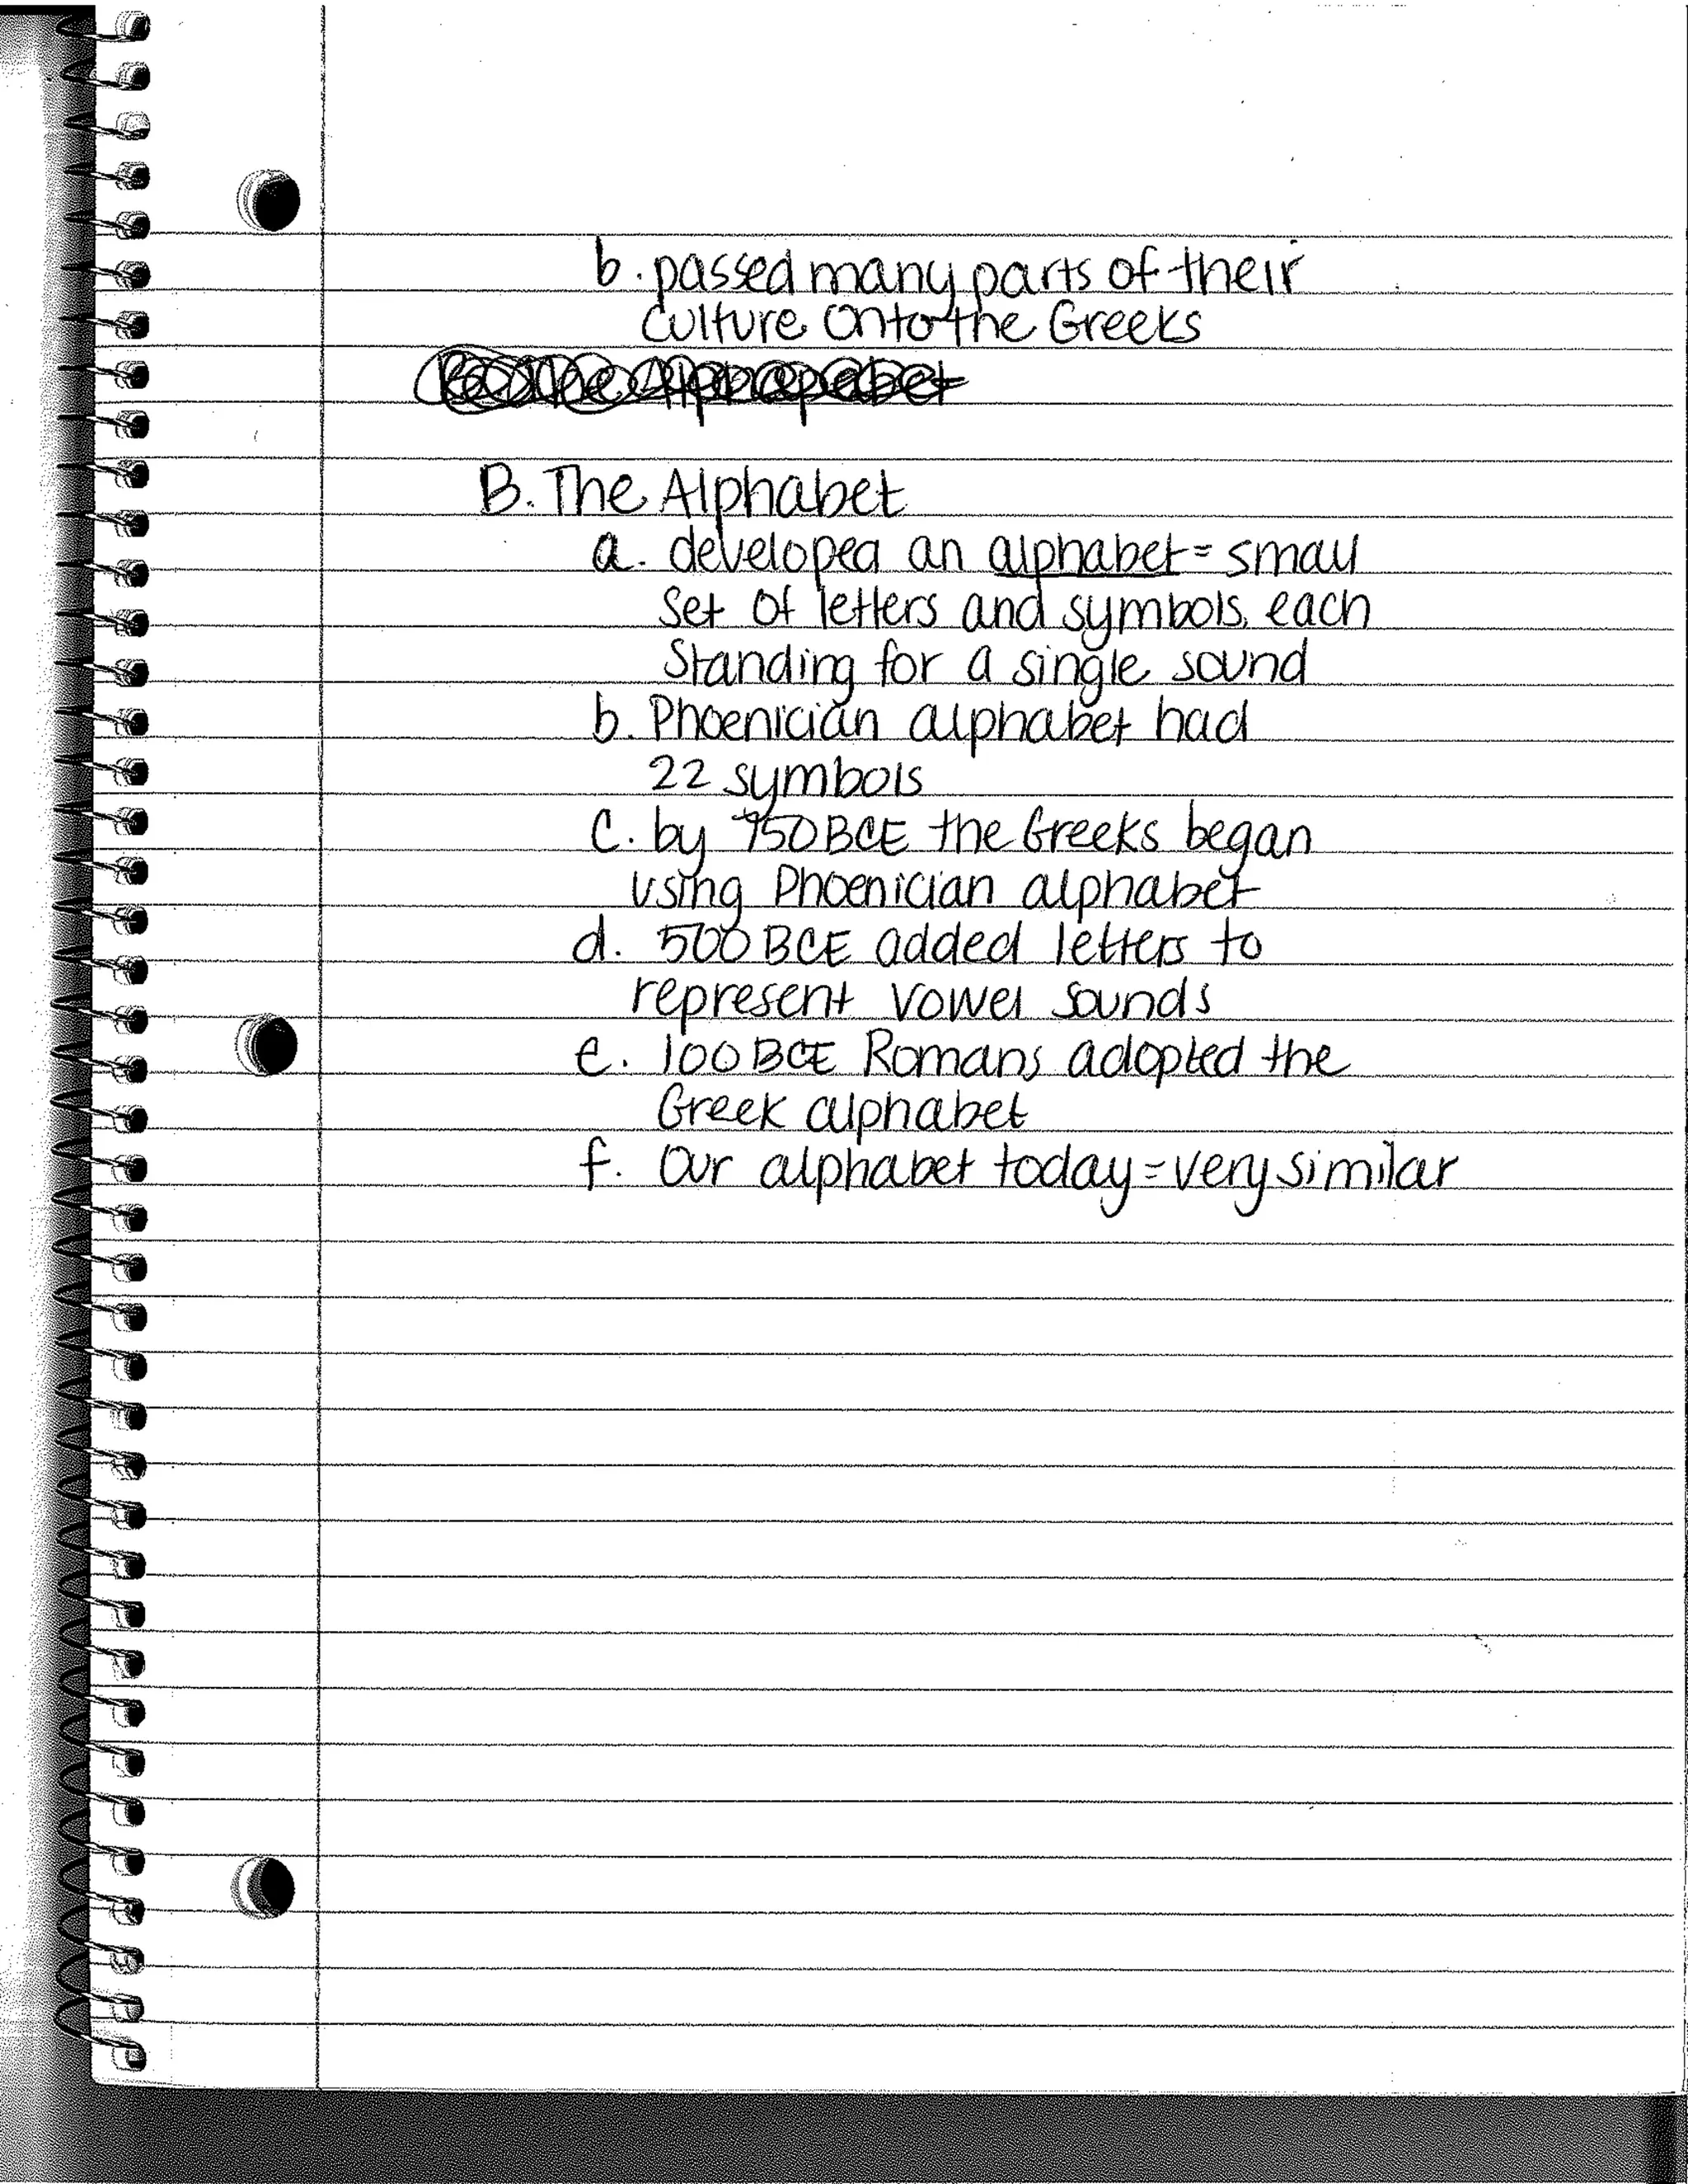 b. passed many parts of their
culture onto the Greeks
B. The Alphabet
a. developed an alphabet = small
set of letters and symbols, each
standing for a single sound
b. Phoenician alphabet had
22 symbols
c. by 750 BCE the Greeks began
using Phoenician alphabet
d. 500 BCE added letters to
represent vowel sounds
e. 100 BCE Romans adopted the
Greek alphabet
f. Our alphabet today = very similar